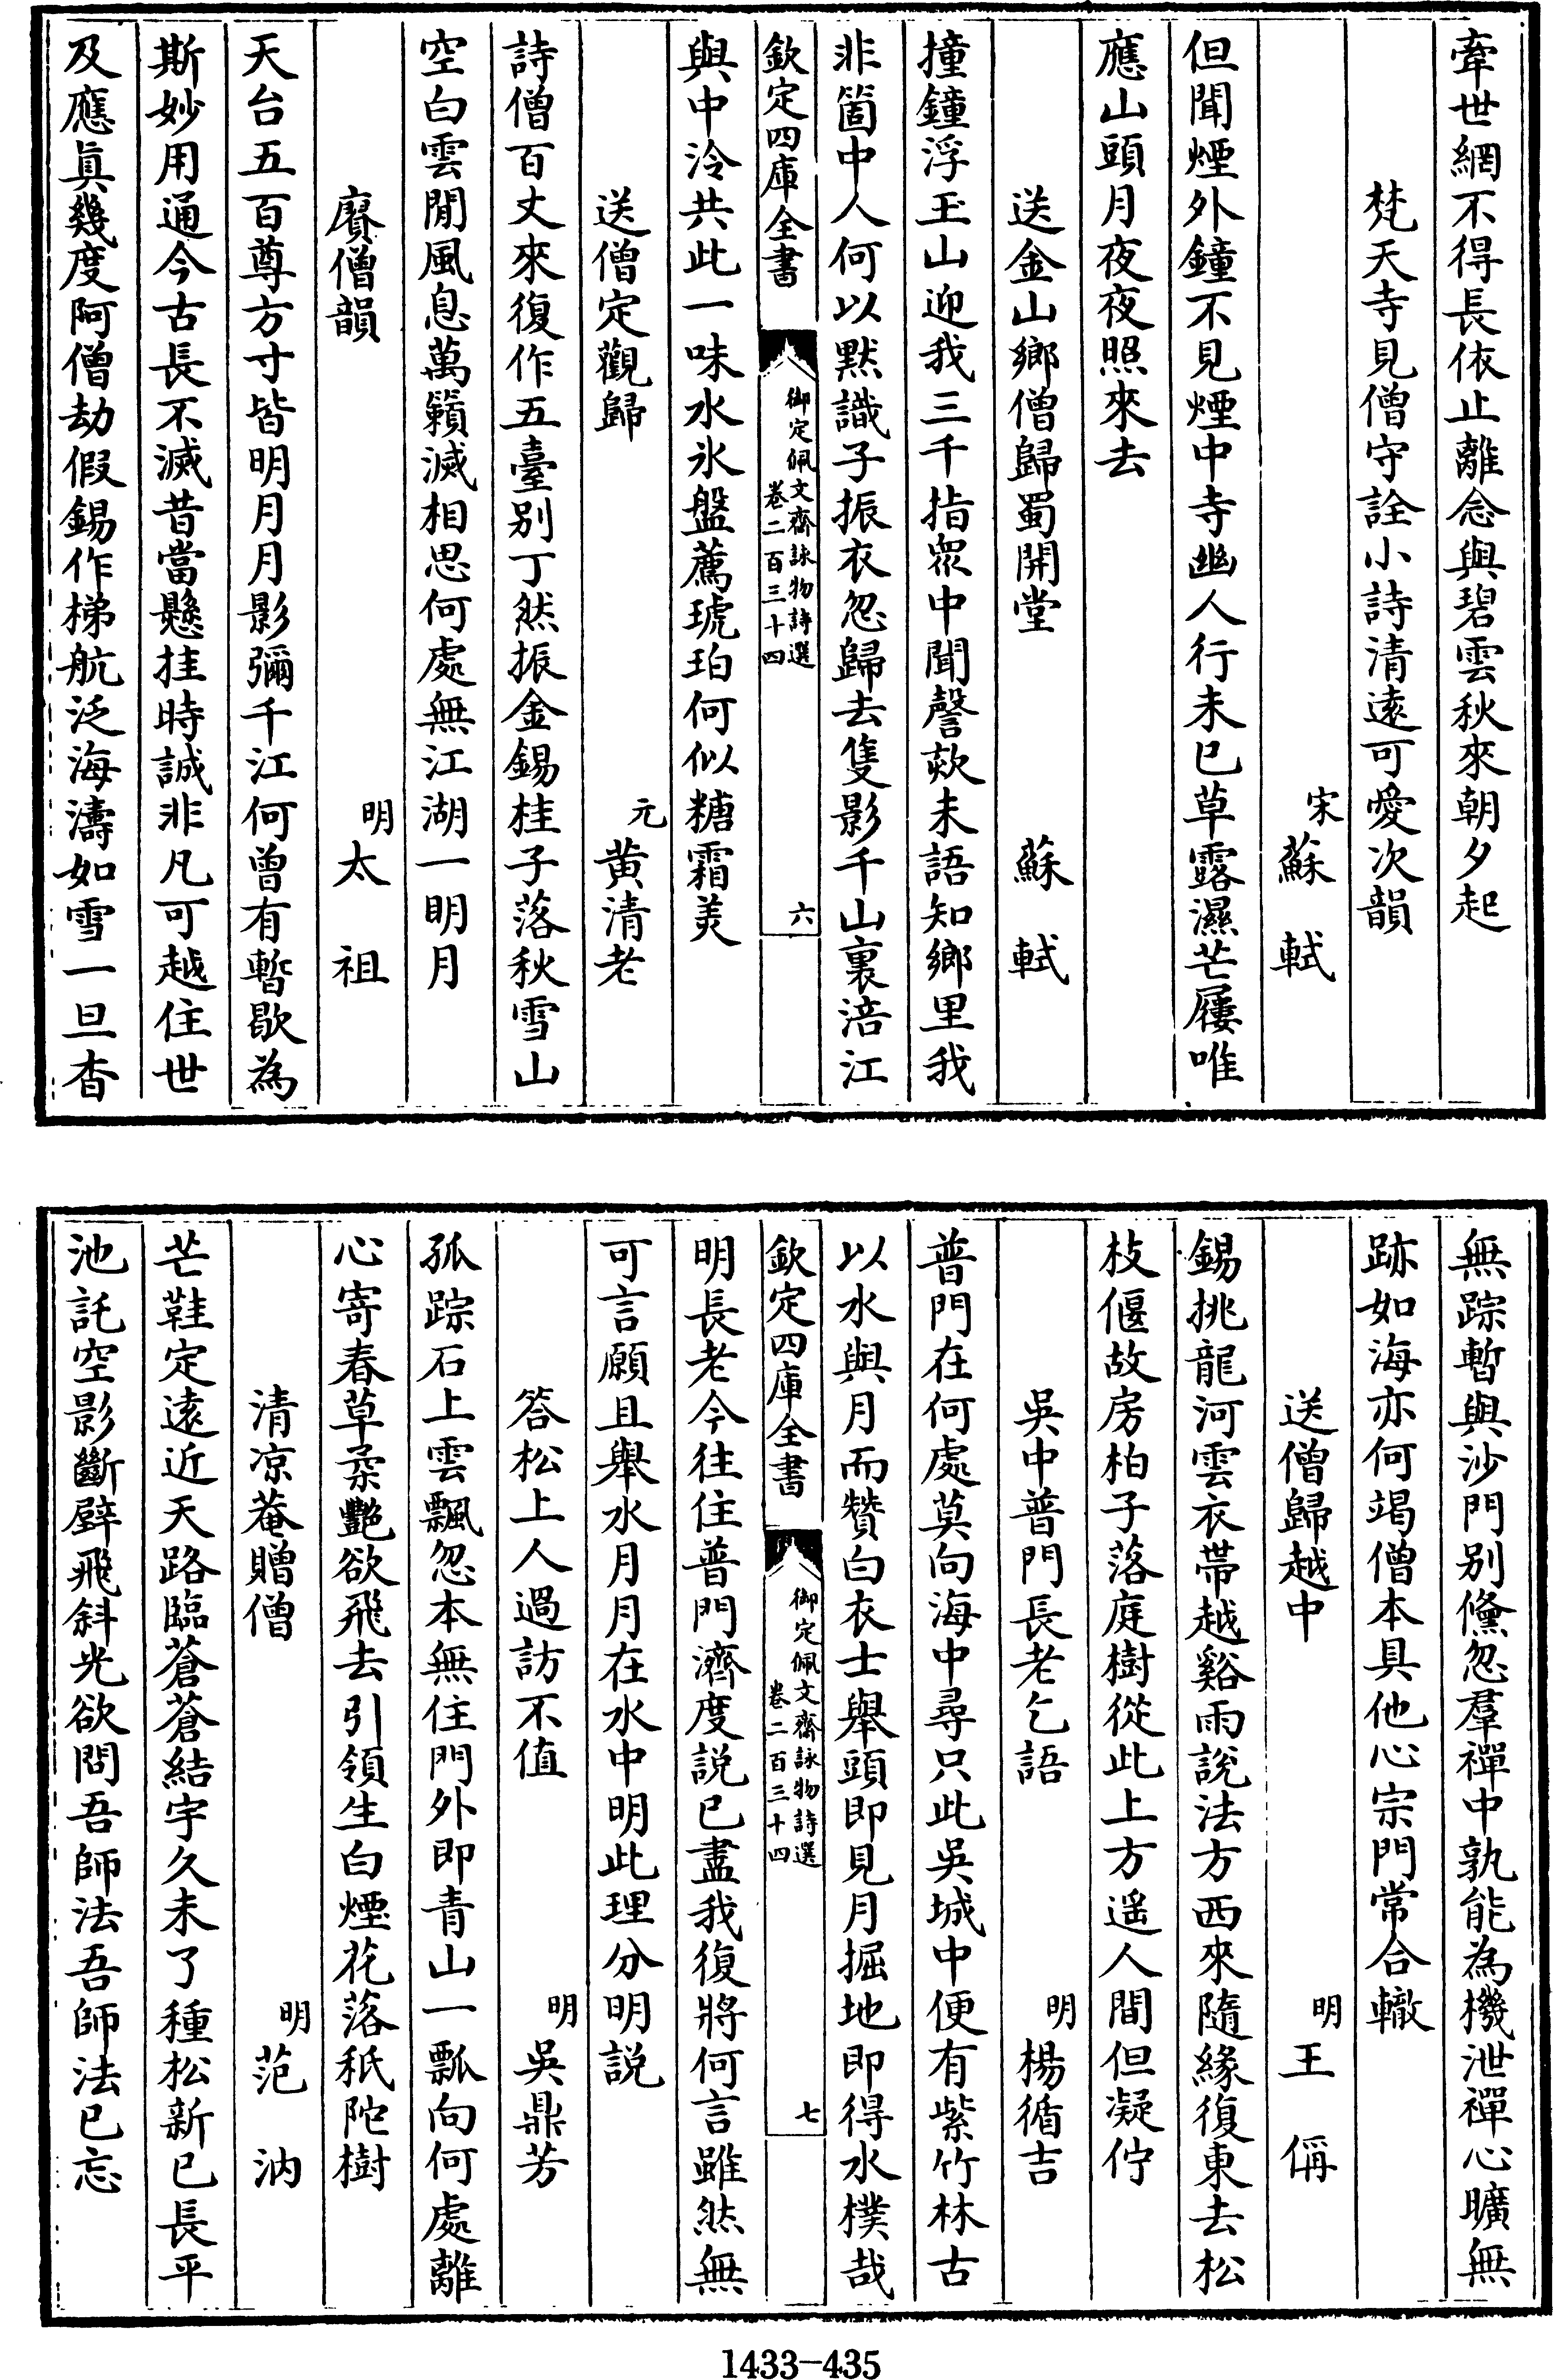 牽世網不得長依止離念與碧雲秋來朝夕起
梵天寺見僧守詮小詩清遠可愛次韻
宋蘇軾
但聞煙外鐘不見煙中寺幽人行未已草露濕芒屨唯
應山頭月夜夜照來去
送金山鄉僧歸蜀開堂 蘇軾
撞鐘浮玉山迎我三千指眾中聞謦欬未語知鄉里我
非箇中人何以默識子振衣忽歸去隻影千山裏涪江
欽定四庫全書 御定佩文齋詠物詩選 卷二百三十四 六
與中泠共此一味水氷盤薦琥珀何似糖霜美
送僧定觀歸 元黃清老
詩僧百丈來復作五臺别丁然振金錫桂子落秋雪山
空白雲閒風息萬籟滅相思何處無江湖一明月
賡僧韻 明太祖
天台五百尊方寸皆明月月影彌千江何曾有暫歇為
斯妙用通今古長不滅昔當懸挂時誠非凡可越住世
及應真幾度阿僧劫假錫作梯航泛海濤如雪一旦杳
無踪暫與沙門别儵忽羣禪中孰能為機泄禪心曠無
跡如海亦何竭僧本具他心宗門常合轍
送僧歸越中 明王偁
錫挑龍河雲衣帶越谿雨說法方西來隨緣復東去松
枝偃故房柏子落庭樹從此上方遥人間但凝佇
吳中普門長老乞語 明楊循吉
普門在何處莫向海中尋只此吳城中便有紫竹林古
以水與月而贊白衣士舉頭即見月掘地即得水樸哉
欽定四庫全書 御定佩文齋詠物詩選 卷二百三十四 七
明長老今往住普門濟度説已盡我復將何言雖然無
可言願且舉水月月在水中明此理分明説
答松上人過訪不值 明吳鼎芳
孤踪石上雲飄忽本無住門外即青山一瓢向何處離
心寄春草柔艷欲飛去引領生白煙花落秖陀樹
清凉菴贈僧 明范汭
芒鞋定遠近天路臨蒼蒼結宇久未了種松新已長平
池託空影斷壁飛斜光欲問吾師法吾師法已忘
1433-435